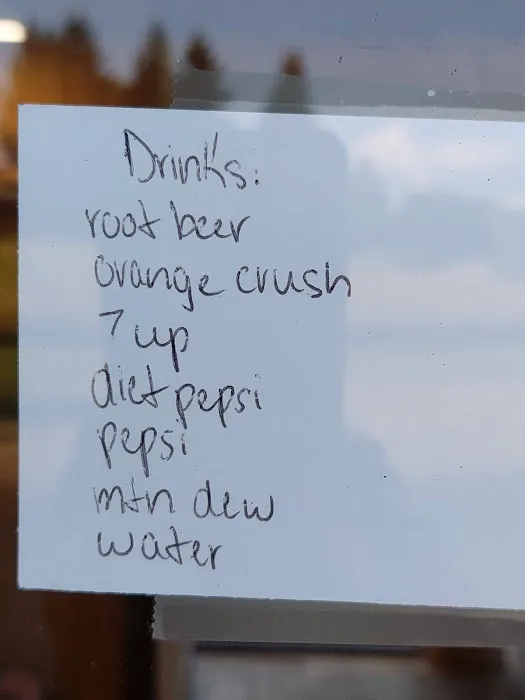 Drinks:
root beer
orange crush
7 up
diet pepsi
pepsi
mtn dew
water